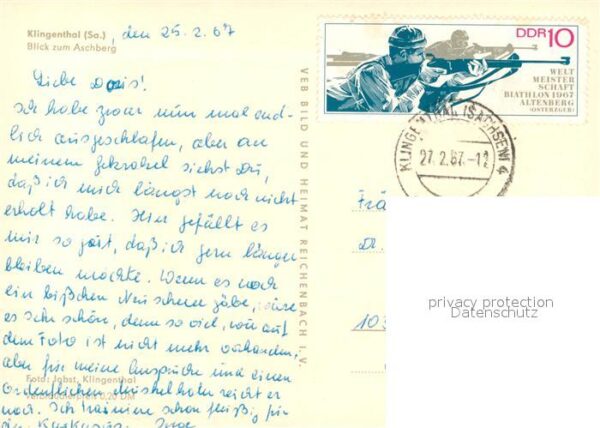 Klingenthal (Sa.), den 25.2.67
Blick zum Aschberg
Liebe Doris!
Ich habe zwar nun mal end-
lich ausgeschlafen, aber an
meinem Gekrakel siehst Du,
daß ich mich längst noch nicht
erholt habe. Hier gefällt es
mir so gut, daß ich gern länger
bleiben möchte. Wenn es noch
ein bißchen Neuschnee gäbe, wäre
es sehr schön, denn so viel, wie auf
dem Foto ist nicht mehr vorhanden,
aber für meine Ansprüche und einen
Foto: Jobst, Klingenthal
ordentlichen Muskelkater reicht er
Verbraucherpreis 0,20 DM
noch. Ich trainiere schon fleißig für
den Kaukasus. Inge
VEB BILD UND HEIMAT REICHENBACH I. V.
DDR 10
WELT
MEISTER
SCHAFT
BIATHLON 1967
ALTENBERG
(OSTERZGEB)
KLINGENTHAL (SACHSEN) 4
27.2.67.-12
Frä
Dr.
103
privacy protection
Datenschutz